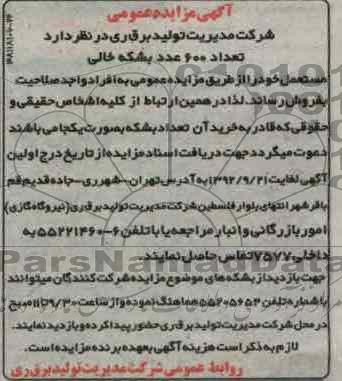 آگهی مزایده عمومی
شرکت مدیریت تولید برق ری در نظر دارد
تعداد ۶۰۰ عدد بشکه خالی
مستعمل خود را از طریق مزایده عمومی به افراد واجد صلاحیت
بفروش رساند. لذا در همین ارتباط از کلیه اشخاص حقیقی و
حقوقی که قادر به خرید آن تعداد بشکه بصورت یکجا می باشند
دعوت میگردد جهت دریافت اسناد مزایده از تاریخ درج اولین
آگهی لغایت ۱۳۹۲/۹/۲۱ به آدرس تهران-شهرری-جاده قدیم قم
باقرشهر انتهای بلوار فلسطین شرکت مدیریت تولید برق ری (نیروگاه گازی)
امور بازرگانی و انبار مراجعه یا با تلفن ۶-۵۵۲۲۱۴۶۰ به
داخلی ۷۵۷۷ تماس حاصل نمایند.
جهت بازدید از بشکه های موضوع مزایده شرکت کنندگان میتوانند
با شماره تلفن ۵۵۲۰۵۶۵۳ هماهنگ نموده و از ساعت ۹/۳۰ الی ۱۱ صبح
در محل شرکت مدیریت تولید برق ری حضور پیدا کرده و بازدید نمایند.
لازم به ذکر است هزینه آگهی بعهده برنده مزایده است.
روابط عمومی شرکت مدیریت تولید برق ری
ParsNamadData